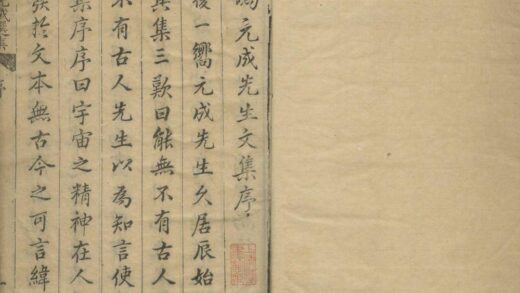 馮元成先生文集序
後一嚮元成先生久居辰始
集三歎曰能無不有古人
不有古人先生以為知言使
集序序曰宇宙之精神在人
於文本無古今之可言緯